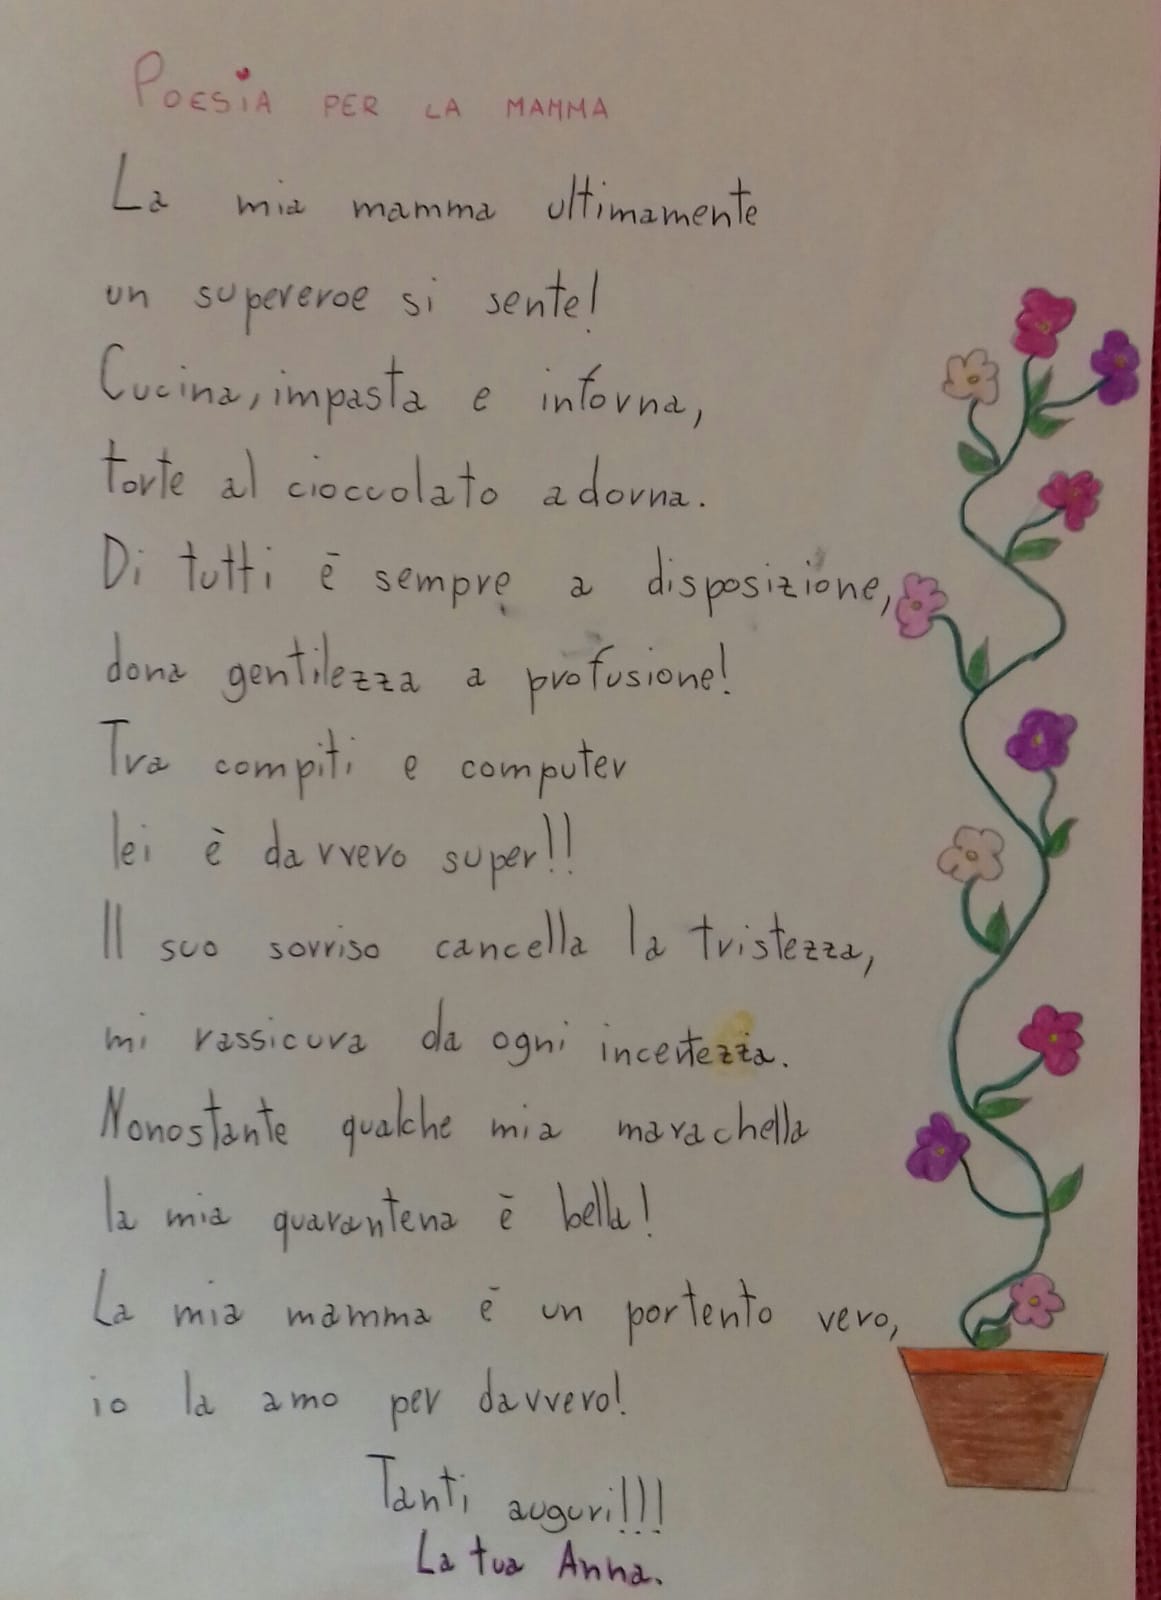 POESIA PER LA MAMMA
La mia mamma ultimamente
un supereroe si sente!
Cucina, impasta e inforna,
torte al cioccolato adorna.
Di tutti è sempre a disposizione,
dona gentilezza a profusione!
Tra compiti e computer
lei è davvero super!!
Il suo sorriso cancella la tristezza,
mi rassicura da ogni incertezza.
Nonostante qualche mia marachella
la mia quarantena è bella!
La mia mamma è un portento vero,
io la amo per davvero!
Tanti auguri!!!
La tua Anna.